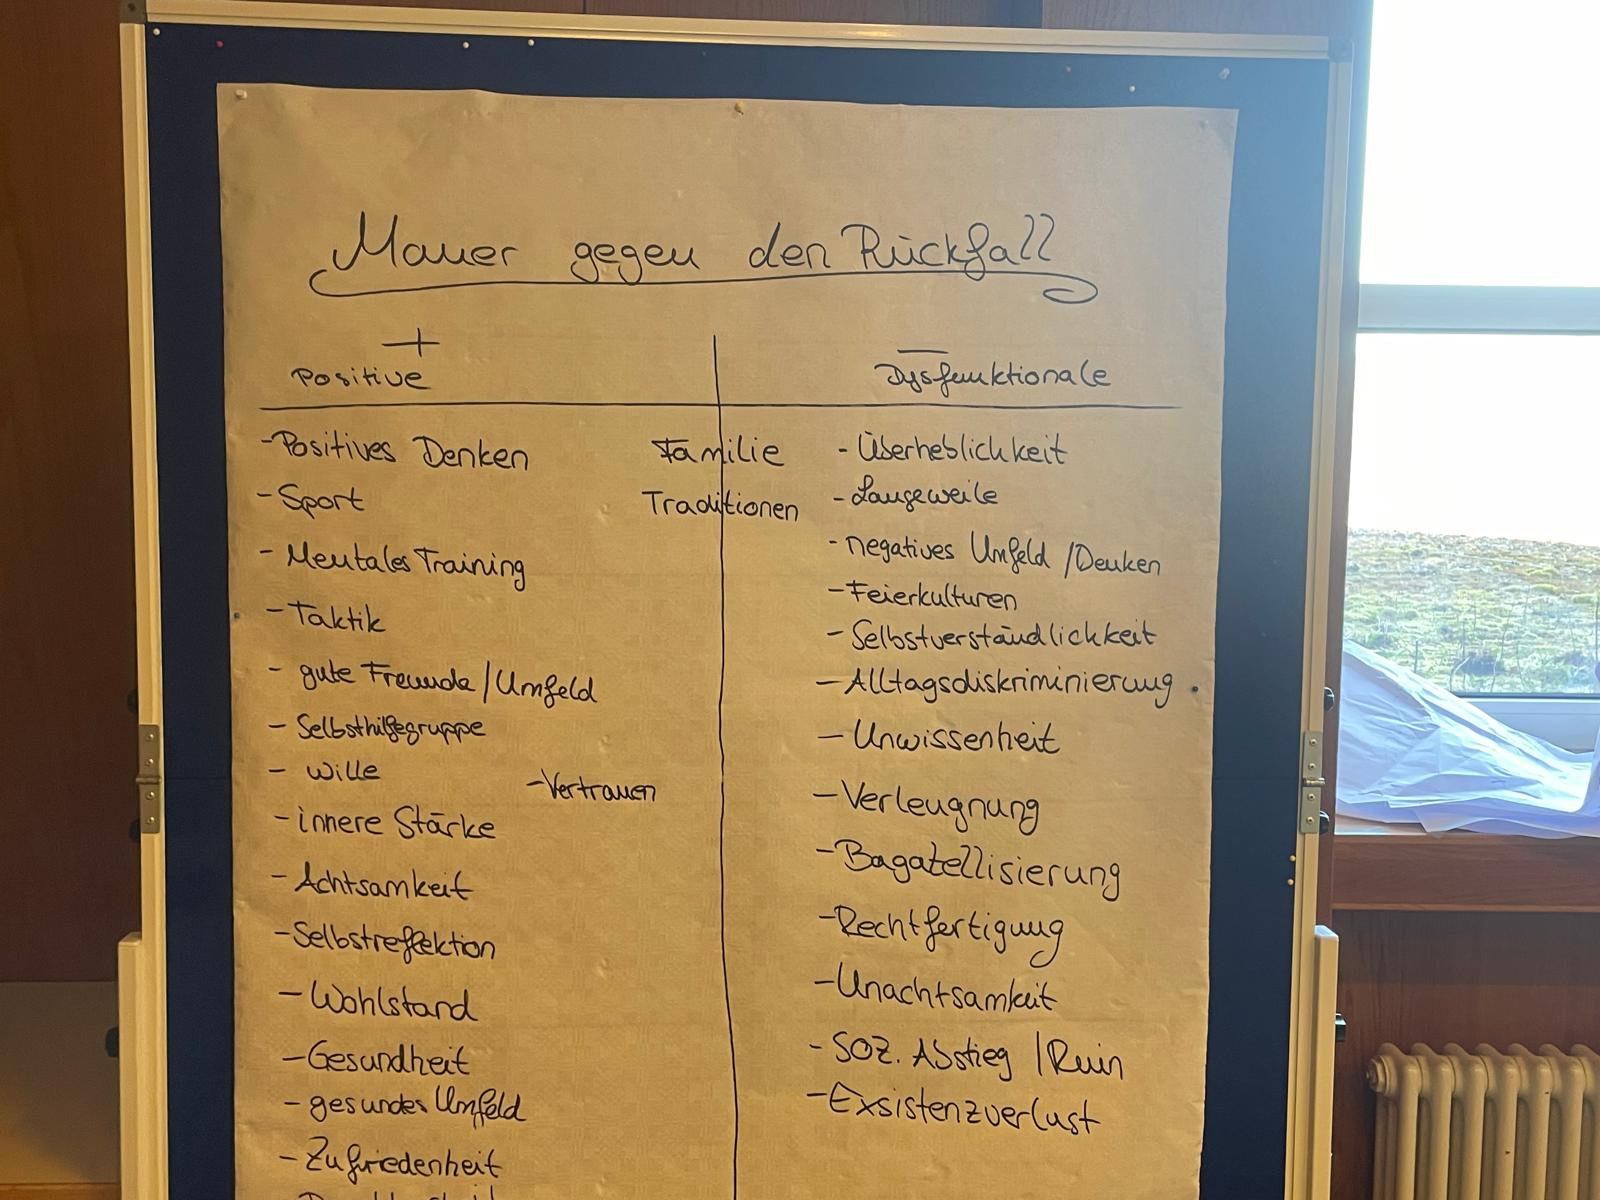 Mauer gegen den Rückfall
+
Positive
—
Dysfunktionale
-Positives Denken
-Sport
-Mentales Training
-Taktik
- gute Freunde/Umfeld
- Selbsthilfegruppe
- Wille
-Vertrauen
-innere Stärke
-Achtsamkeit
-Selbstreflektion
-Wohlstand
-Gesundheit
-gesundes Umfeld
-Zufriedenheit
Familie
Traditionen
-Überheblichkeit
-Langeweile
-negatives Umfeld/Denken
-Feierkulturen
-Selbstverständlichkeit
-Alltagsdiskriminierung
-Unwissenheit
-Verleugnung
-Bagatellisierung
-Rechtfertigung
-Unachtsamkeit
-Soz. Abstieg/Ruin
-Exsistenzverlust